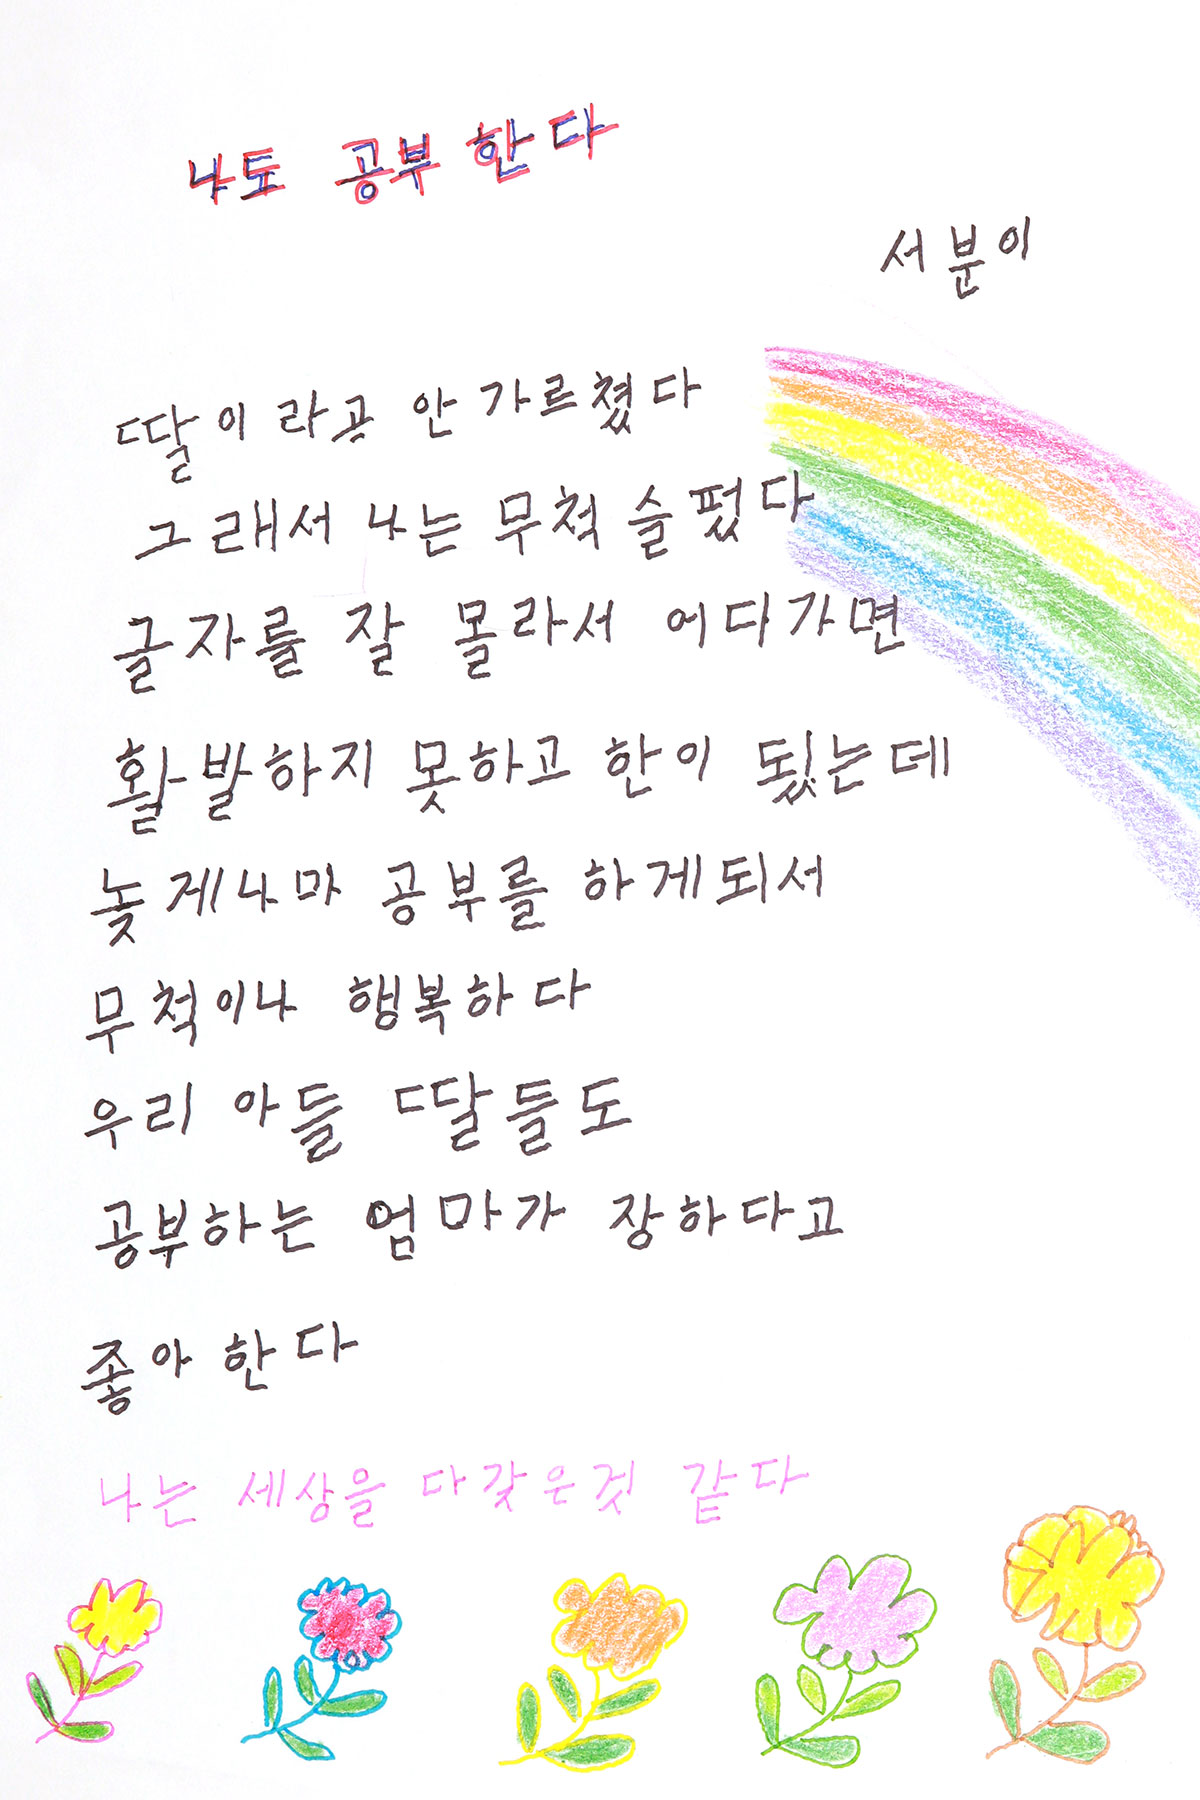 나도 공부 한다
서분이
딸이라고 안 가르쳤다
그래서 나는 무척 슬펐다
글자를 잘 몰라서 어디가면
활발하지 못하고 한이 됬는데
늦게나마 공부를 하게되서
무척이나 행복하다
우리 아들 딸들도
공부하는 엄마가 장하다고
좋아 한다
나는 세상을 다갖은것 같다